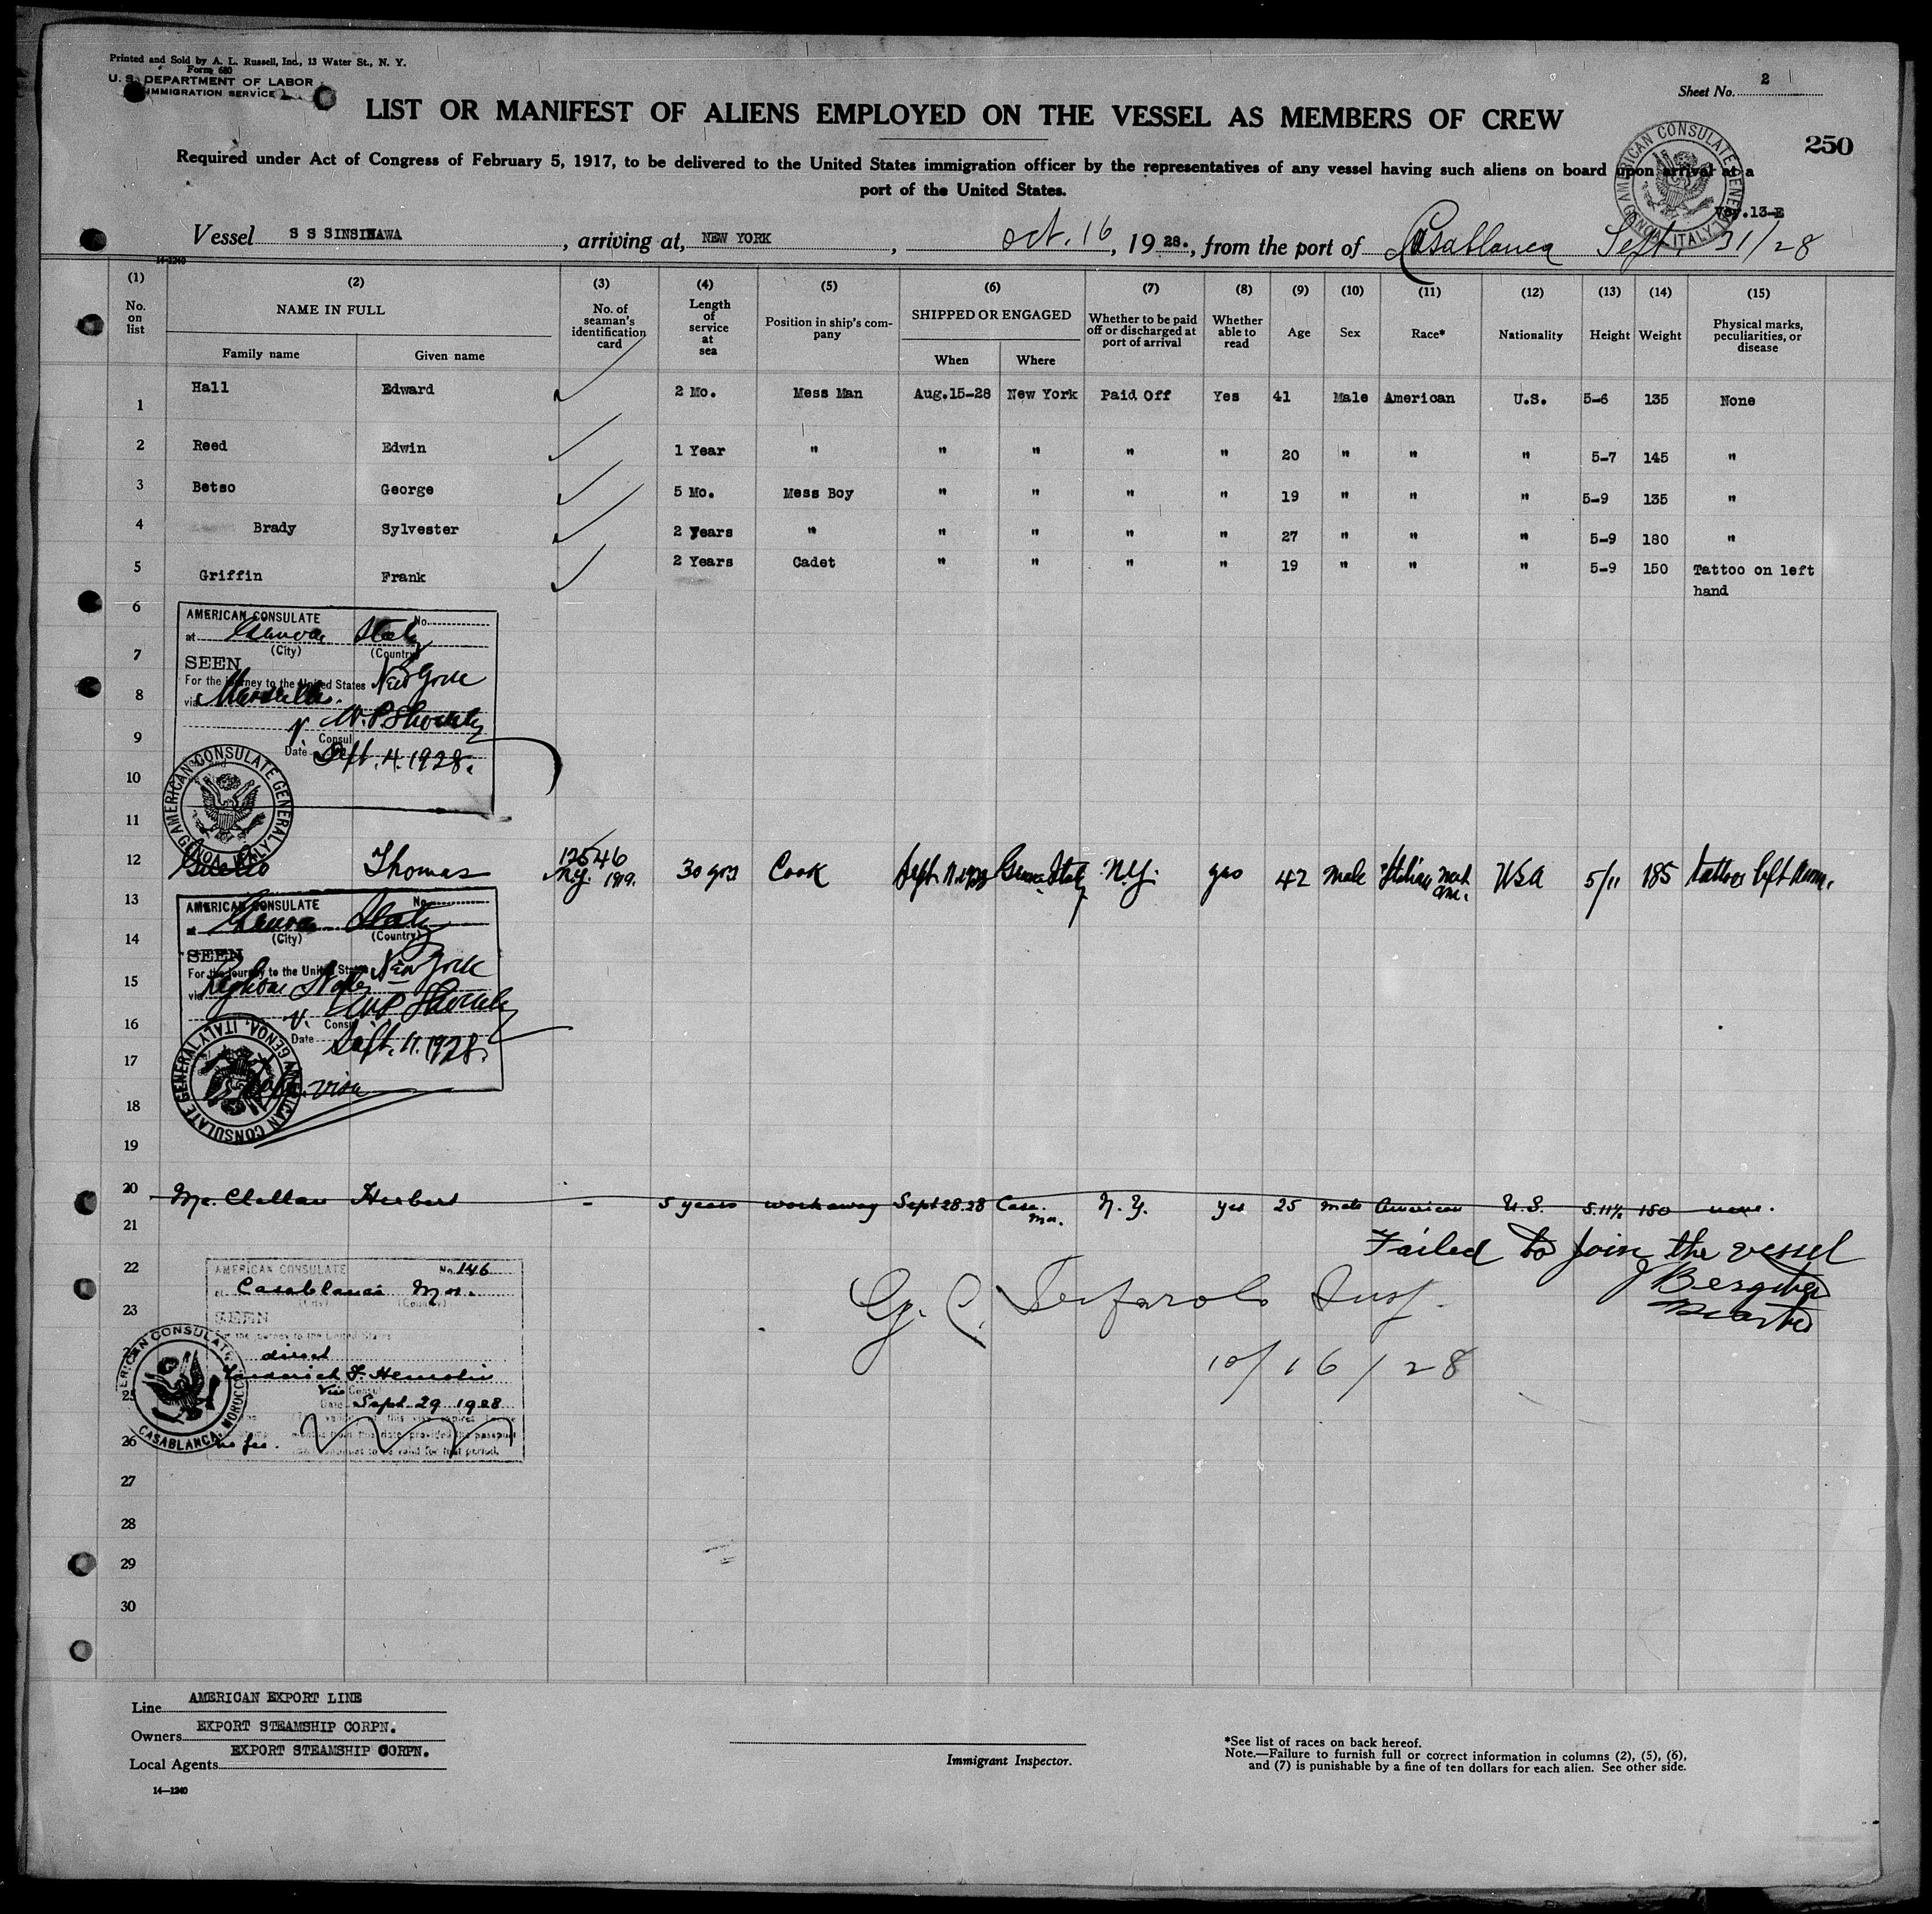 Printed and Sold by A. L. Russell, Inc., 13 Water St., N. Y.
Form 680
U. S. DEPARTMENT OF LABOR
IMMIGRATION SERVICE
Sheet No. 2
LIST OR MANIFEST OF ALIENS EMPLOYED ON THE VESSEL AS MEMBERS OF CREW
250
Required under Act of Congress of February 5, 1917, to be delivered to the United States immigration officer by the representatives of any vessel having such aliens on board upon arrival at a
port of the United States.
AMERICAN CONSULATE GENERAL GENOA, ITALY
Voy.13-E
Vessel S S SINSINAWA, arriving at, NEW YORK, Oct. 16, 1928., from the port of Casablanca Sept. 31/28
14-1240
(1) (2) (3) (4) (5) (6) (7) (8) (9) (10) (11) (12) (13) (14) (15)
No. on list NAME IN FULL No. of seaman's identification card Length of service at sea Position in ship's company SHIPPED OR ENGAGED Whether to be paid off or discharged at port of arrival Whether able to read Age Sex Race* Nationality Height Weight Physical marks, peculiarities, or disease
Family name Given name When Where
1 Hall Edward 2 Mo. Mess Man Aug.15-28 New York Paid Off Yes 41 Male American U.S. 5-6 135 None
2 Reed Edwin 1 Year " " " " " 20 " " " 5-7 145 "
3 Betso George 5 Mo. Mess Boy " " " " 19 " " " 5-9 135 "
4 Brady Sylvester 2 Years " " " " " 27 " " " 5-9 180 "
5 Griffin Frank 2 Years Cadet " " " " 19 " " " 5-9 150 Tattoo on left
hand
6
AMERICAN CONSULATE No.
at Genoa Italy
(City) (Country)
7
SEEN
For the journey to the United States New York
8
via Marseilles.
V. Consul
9
Date Sept. 4. 1928.
10
AMERICAN CONSULATE GENERAL GENOA, ITALY
11
12 Thomas 12546 N.Y. 1919. 30 yrs Cook Sept. 11. 1928 Genoa Italy N.Y. yes 42 male Italian USA 5/11 185 tattoo left arm.
13
AMERICAN CONSULATE No.
at Genoa Italy
(City) (Country)
14
SEEN
For the journey to the United States New York
15
via
16
V. Consul
Date Sept. 11. 1928.
17
visa
AMERICAN CONSULATE GENERAL GENOA, ITALY
18
19
20 Mc. Clellan Herbert - 5 years workaway Sept 28.28 Casa. Mor. N. Y. yes 25 male American U.S. 5.11½ 150 none.
21
Failed to join the vessel
Master
22
AMERICAN CONSULATE No. 146
at Casablanca Mor.
(City) (Country)
23
SEEN
For the journey to the United States
24
direct
25
Vice Consul
Date Sept. 29 1928
10/16/28
AMERICAN CONSULATE CASABLANCA, MOROCCO
26 no fee.
27
28
29
30
Line AMERICAN EXPORT LINE
Owners EXPORT STEAMSHIP CORPN.
Local Agents EXPORT STEAMSHIP CORPN.
14-1240
Immigrant Inspector.
*See list of races on back hereof.
Note.—Failure to furnish full or correct information in columns (2), (5), (6),
and (7) is punishable by a fine of ten dollars for each alien. See other side.